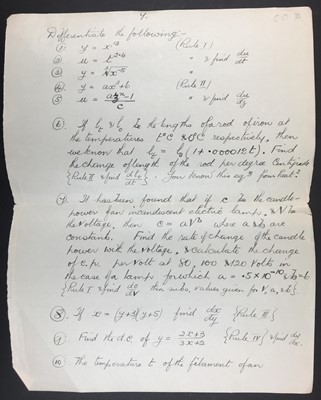 4.
Differentiate the following:-
(1) y = x^13 (Rule I)
(2) u = t^2·6 " & find du/dt
(3) y = ∜x^-5 "
(4) y = ax^2 + 6 (Rule II)
(5) u = " & find du/dz
(6) If lt & l0 be the lengths of a rod of iron at
the temperatures t°C & 0°C respectively, then
we know that lt = l0(1+·000012t). Find
the change of length of the rod per degree Centigrade
{Rule II & find dlt/dt}. You know this eqn from heat?
(7) It has been found that if c be the candle-
power of an incandescent electric lamp, & V be
the Voltage, then c = aV^b where a & b are
constants. Find the rate of change of the candle
power with the voltage, & calculate the change
of c.p. per Volt at 80, 100 & 120 Volts in
the case of a lamp for which a = ·5×10^-10, & b=6
{Rule I & find dc/dV then subs. values given for V, a, & b}
(8) If x = (y+3)(y+5) find dx/dy {Rule III}
(9) Find the d.c. of y = 2x+3/3x+2 {Rule IV} & find dy/dx.
(10) The temperature t of the filament of an